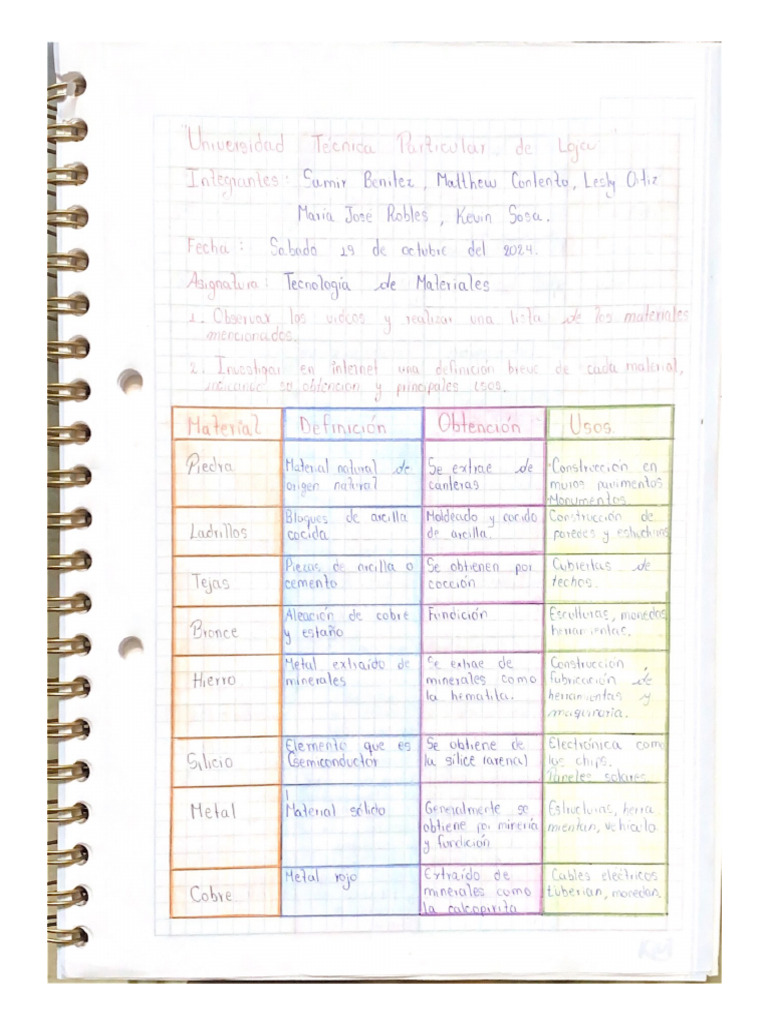 "Universidad Técnica Particular de Loja"
Integrantes: Samir Benitez, Matthew Contento, Lesly Ortiz
María José Robles, Kevin Sosa.
Fecha: Sabado 19 de octubre del 2024.
Asignatura: Tecnología de Materiales
1. Observar los videos y realizar una lista de los materiales
mencionados.
2. Investigar en internet una definición breve de cada material,
su obtencion y principales usos.
Material Definición Obtención Usos.
Piedra
Material natural de
origen natural
Se extrae de
canteras
Construcción en
muros pavimentos
Monumentos.
Ladrillos
Bloques de arcilla
cocida
Moldeado y cocido
de arcilla.
Construcción de
paredes y
Tejas
Piezas de arcilla o
cemento
Se obtienen por
cocción
Cubiertas de
techos.
Bronce
Aleación de cobre
y estaño
Fundición
Esculturas, monedas
herramientas.
Hierro
Metal extraído de
minerales
Se extrae de
minerales como
la hematita.
Construcción
fabricación de
herramientas y
maquinaria.
Silicio
Elemento que es
semiconductor
Se obtiene de
la sílice (arena)
Electrónica como
los chips.
Paneles solares.
Metal
Material sólido
Generalmente se
obtiene por minería
y fundición
Estructuras, herra
mientan, vehiculo
Cobre
Metal rojo
Extraído de
minerales como
la calcopirita
Cables eléctricos
tuberian, monedan.